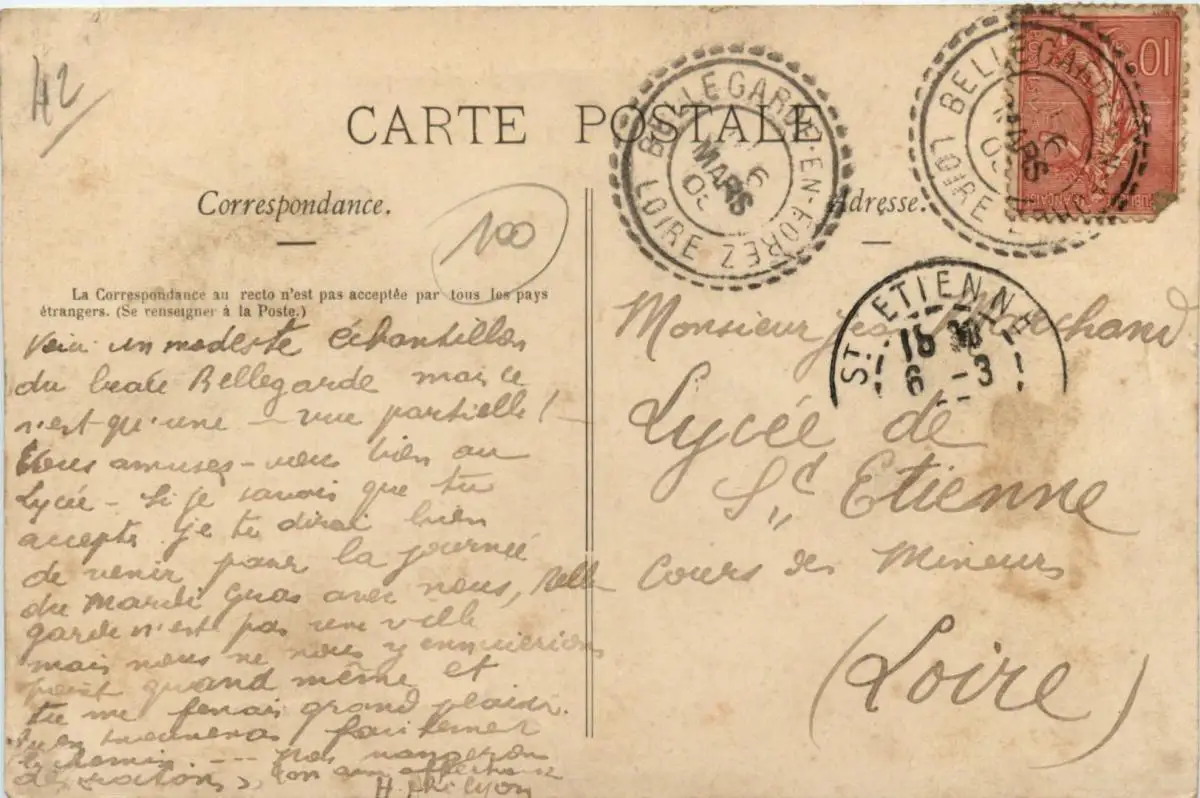 42
CARTE POSTALE
BELLEGARDE-EN-FOREZ
6
MARS
LOIRE
BELLEGARDE-EN
6
MARS
LOIRE
10c
Correspondance.
Adresse.
100
La Correspondance au recto n'est pas acceptée par tous les pays
étrangers. (Se renseigner à la Poste.)
ST ETIENNE
6 -3
Voici un modeste échantillon
du beau Bellegarde mais ce
n'est qu'une - vue partielle! -
amuses-vous bien au
Lycée - Si je savais que tu
acceptes je te dirai bien
de venir pour la journée
du Mardi Gras avec nous, Belle-
garde n'est pas une ville
mais nous ne nous y ennuierions
point quand même et
tu me ferais grand plaisir.
facilement
le chemin ---- pas
ton ami
H.
Monsieur Jean Marchand
Lycée de
St Etienne
Cours des Mineurs
(Loire)